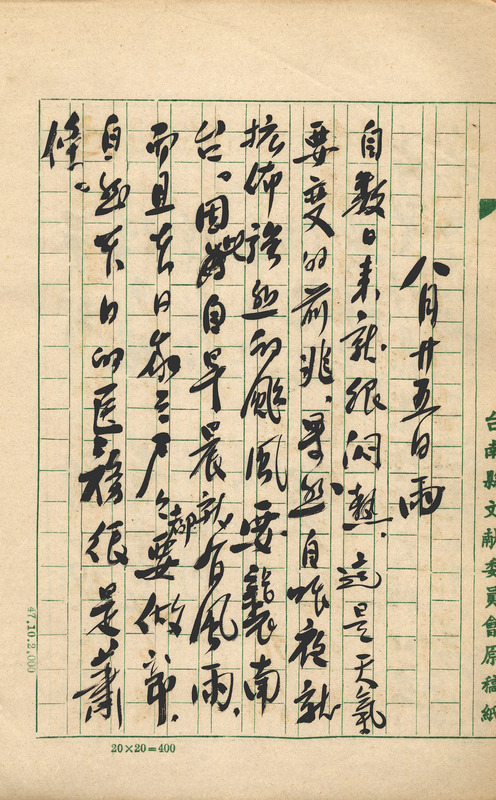 台南縣文献委員會原稿紙
八月廿五日雨
自數日來就很悶熱。這是天氣
要變的前兆。果然自昨夜就
拡佈強烈的颱風要襲南
台。因此自早晨就有風雨,
而且本日家々戶々都要做節,
自然本日的医務很是蕭
條。
47.10.2,000
20×20=400